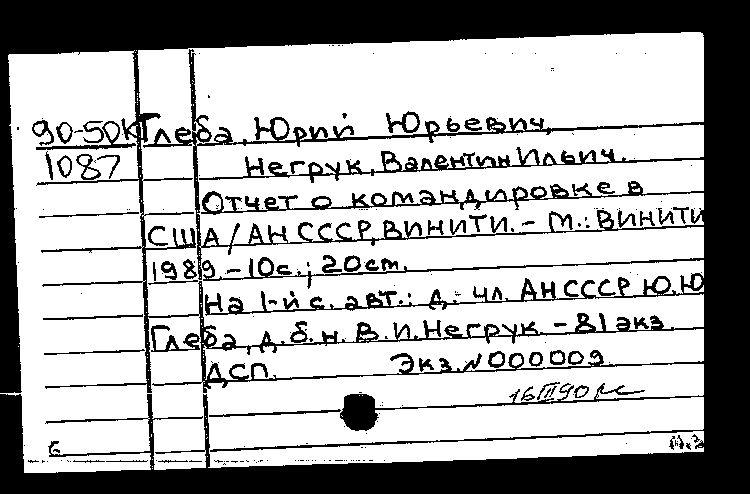 90-50К Глеба, Юрий Юрьевич,
1087 Негрук, Валентин Ильич.
Отчет о командировке в
США / АН СССР, ВИНИТИ. - М.: ВИНИТИ
1989. - 10с.; 20см.
На 1-й с. авт.: д. чл. АН СССР Ю.Ю
Глеба, д.б.н. В.И. Негрук. - 81 экз.
ДСП. Экз. N000009
16 III 90
Б
М.З